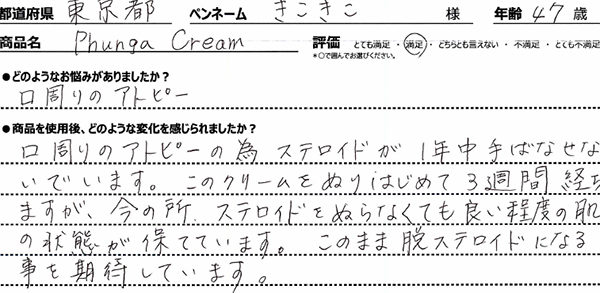 都道府県 東京都 ペンネーム きこきこ 様 年齢 47 歳
商品名 Phunga Cream 評価 とても満足・満足・どちらとも言えない・不満足・とても不満足
*○で囲んでお選びください。
●どのようなお悩みがありましたか?
口周りのアトピー
●商品を使用後、どのような変化を感じられましたか?
口周りのアトピーの為ステロイドが1年中手ばなせな
いでいます。このクリームをぬりはじめて3週間経ち
ますが、今の所、ステロイドをぬらなくても良い程度の肌
の状態が保てています。このまま脱ステロイドになる
事を期待しています。